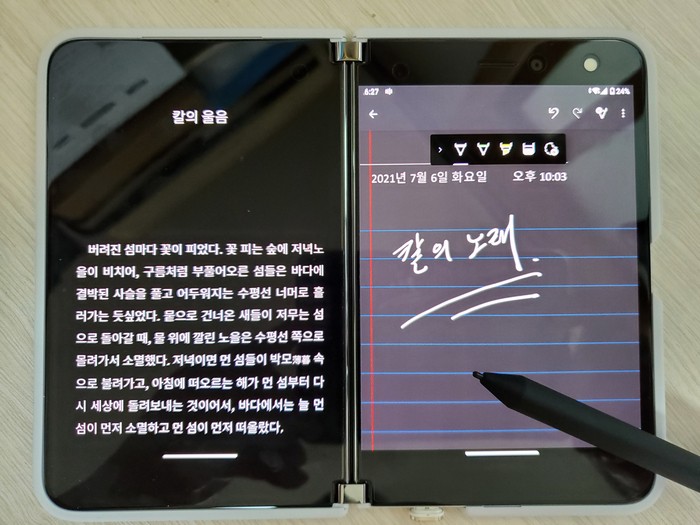 칼의 울음
버려진 섬마다 꽃이 피었다. 꽃 피는 숲에 저녁노
을이 비치어, 구름처럼 부풀어오른 섬들은 바다에
결박된 사슬을 풀고 어두워지는 수평선 너머로 흘
러가는 듯싶었다. 뭍으로 건너온 새들이 저무는 섬
으로 돌아갈 때, 물 위에 깔린 노을은 수평선 쪽으로
몰려가서 소멸했다. 저녁이면 먼 섬들이 박모薄暮 속
으로 불려가고, 아침에 떠오르는 해가 먼 섬부터 다
시 세상에 돌려보내는 것이어서, 바다에서는 늘 먼
섬이 먼저 소멸하고 먼 섬이 먼저 떠올랐다.
6:27 24%
2021년 7월 6일 화요일 오후 10:03
칼의 노래.